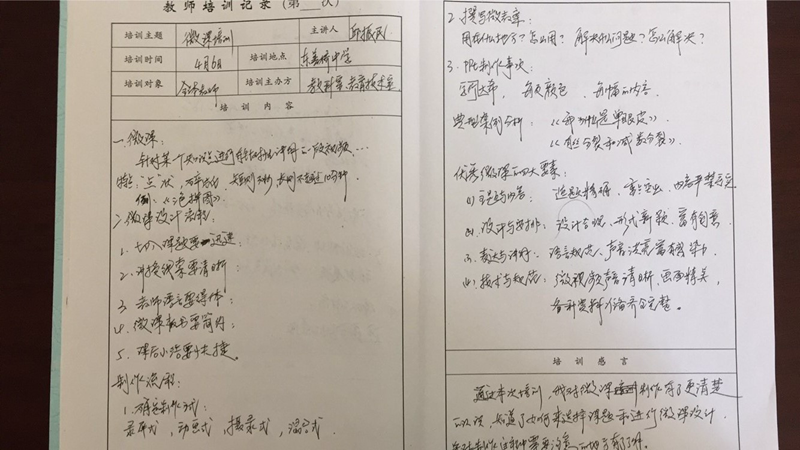 教师培训记录（第 次）
培训主题 微课培训 主讲人 邱振民
培训时间 4月6日 培训地点 东美桥中学
培训对象 全体老师 培训主办方 教科室、教育技术室
培训内容
一、微课：
针对某个知识点进行 讲解的一段视频…
特征：
例：《 》
二、微课设计 ：
1. 切入课题要迅速
2. 讲授线索要清晰；
3. 老师语言要得体；
4. 微课板书要简约；
5. 课后小结要快捷。
制作流程：
1. 确定制作方式：
录屏式，动画式，摄录式，混合式
2. 撰写微教案：
用在什么地方？怎么用？解决什么问题？怎么解决？
3. PPt制作事项：
空间布局，每页颜色，每幅的内容。
典型案例分析：《 单眼皮》
《有丝分裂和减数分裂》
优秀微课四大要素：
(1) 主题与内容： 选题精确，重点突出，
(2) 设计与安排：设计合理，形式新颖，富有创意
(3) 表达与讲解：语言规范、声音洪亮富有感染力
(4) 技术与规范：微视频声音清晰，画面精美，
各种资料准备齐全完整。
培训感言
通过本次培训，我对微课 制作有了更清楚
的认识，知道了如何来选择课题和进行微课设计